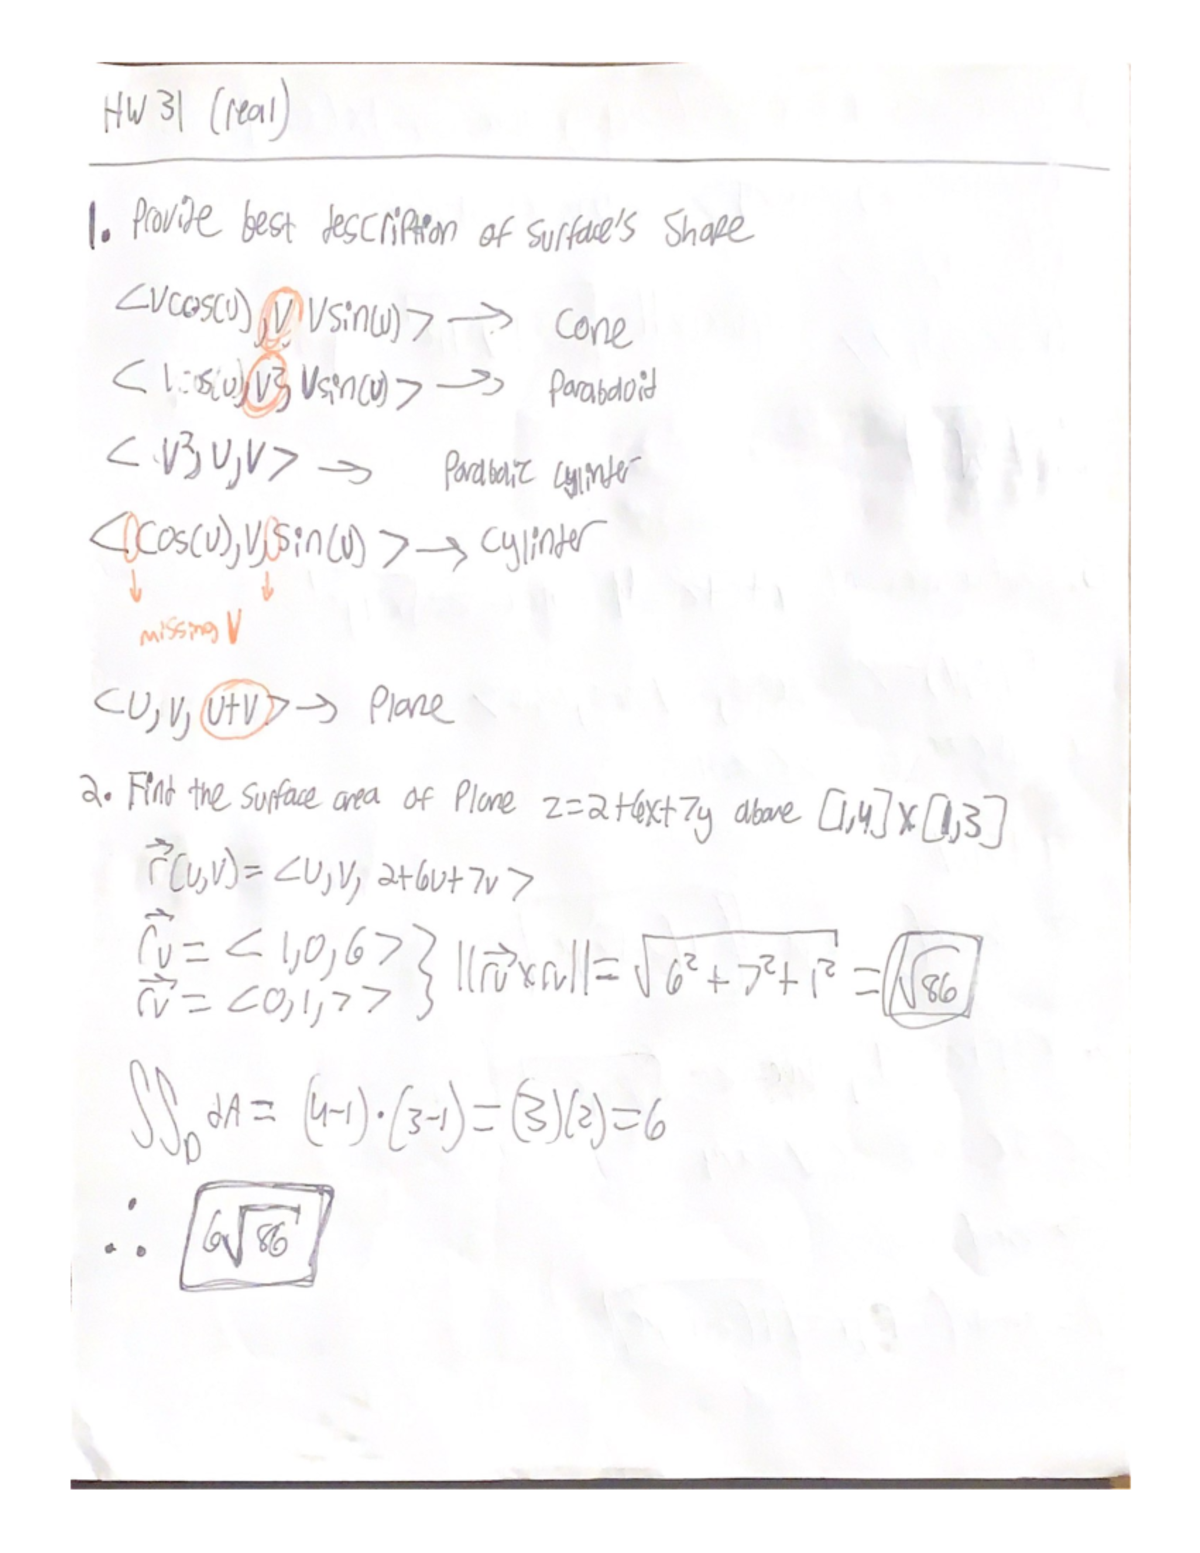 HW 31 (real)
1. Provide best description of surface's shape
<Vcos(u), V, Vsin(u)> → cone
<Vcos(u), V², Vsin(u)> → Paraboloid
<V², U, V> → Parabolic cylinder
<cos(u), V, sin(u)> → cylinder
missing V
<U, V, U+V> → Plane
2. Find the surface area of Plane z=2+6x+7y above [1,4]×[1,3]
r⃗(u,v)= <U, V, 2+6u+7v>
r⃗u = <1,0,6> } ||r⃗u×rv|| = √(6²+7²+1²) = √86
r⃗v = <0,1,7>
∬_D dA = (4-1)·(3-1) = (3)(2) = 6
∴ 6√86